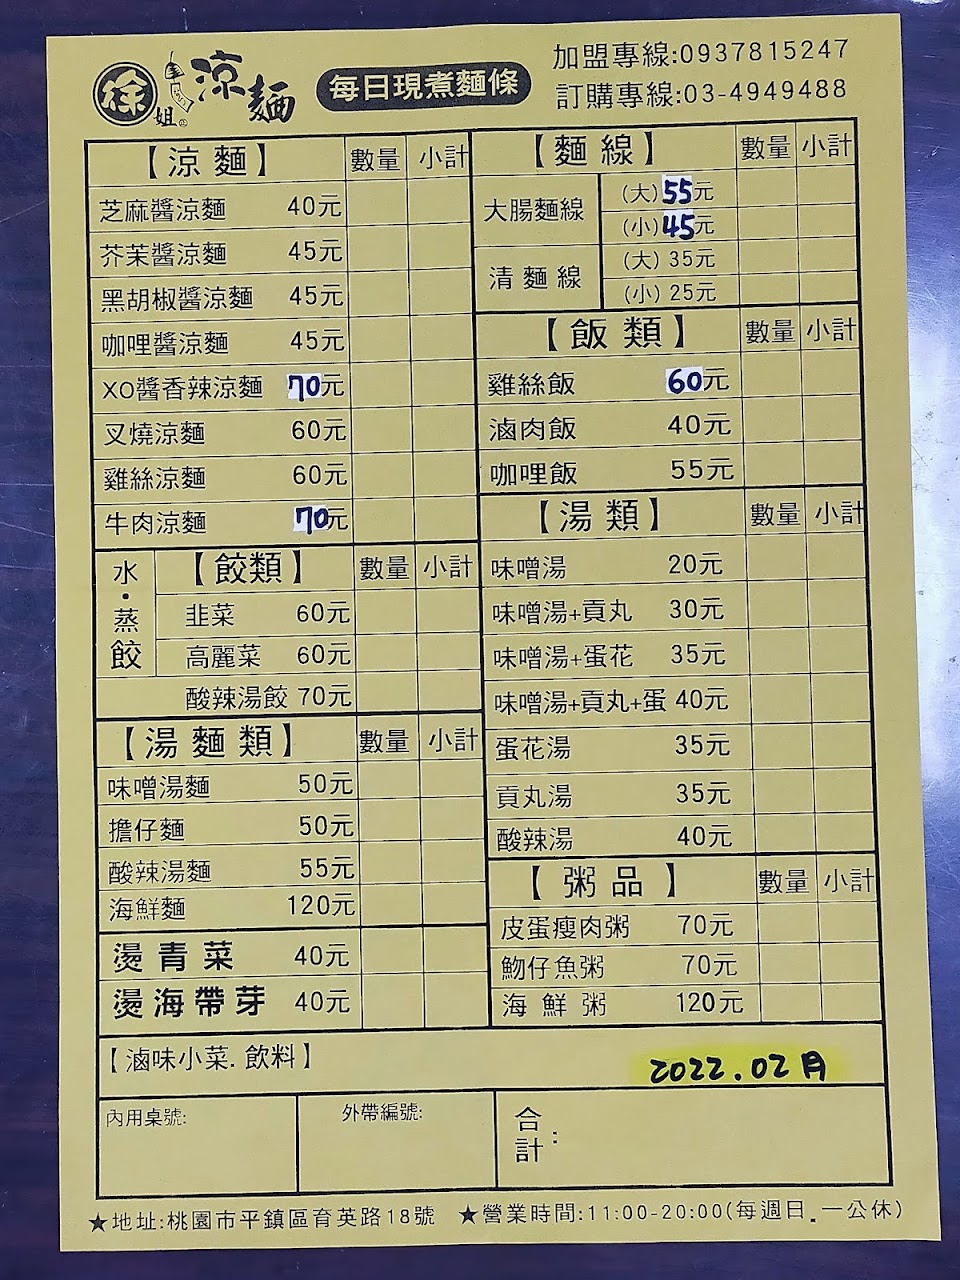 徐姐 涼麵 每日現煮麵條
加盟專線:0937815247
訂購專線:03-4949488
【涼麵】 數量 小計
芝麻醬涼麵 40元
芥茉醬涼麵 45元
黑胡椒醬涼麵 45元
咖哩醬涼麵 45元
XO醬香辣涼麵 70元
叉燒涼麵 60元
雞絲涼麵 60元
牛肉涼麵 70元
水・蒸餃
【餃類】 數量 小計
韭菜 60元
高麗菜 60元
酸辣湯餃 70元
【湯麵類】 數量 小計
味噌湯麵 50元
擔仔麵 50元
酸辣湯麵 55元
海鮮麵 120元
燙青菜 40元
燙海帶芽 40元
【麵線】 數量 小計
大腸麵線 (大)55元
(小)45元
清麵線 (大)35元
(小)25元
【飯類】 數量 小計
雞絲飯 60元
滷肉飯 40元
咖哩飯 55元
【湯類】 數量 小計
味噌湯 20元
味噌湯+貢丸 30元
味噌湯+蛋花 35元
味噌湯+貢丸+蛋 40元
蛋花湯 35元
貢丸湯 35元
酸辣湯 40元
【粥品】 數量 小計
皮蛋瘦肉粥 70元
魩仔魚粥 70元
海鮮粥 120元
【滷味小菜.飲料】
2022.02月
內用桌號:
外帶編號:
合計:
★地址:桃園市平鎮區育英路18號 ★營業時間:11:00-20:00(每週日.一公休)